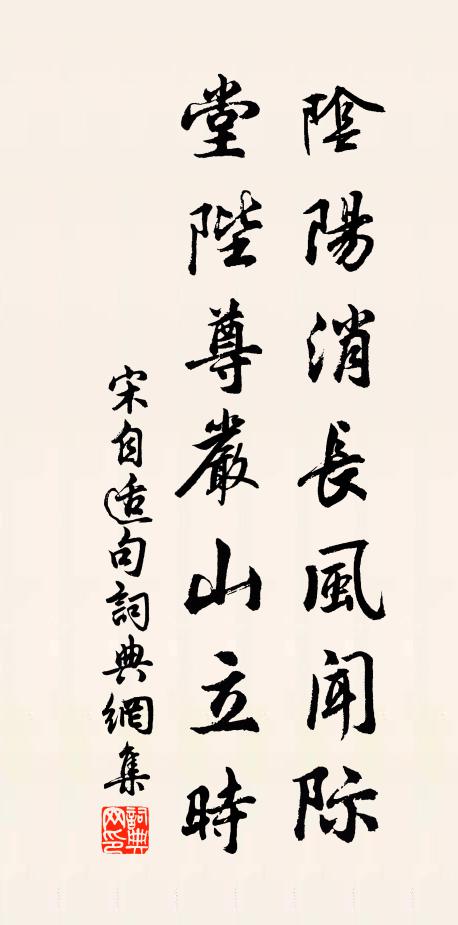 陰陽消長風聞际
堂陛尊嚴山立時
宋自适句詞典網集
詞典网印